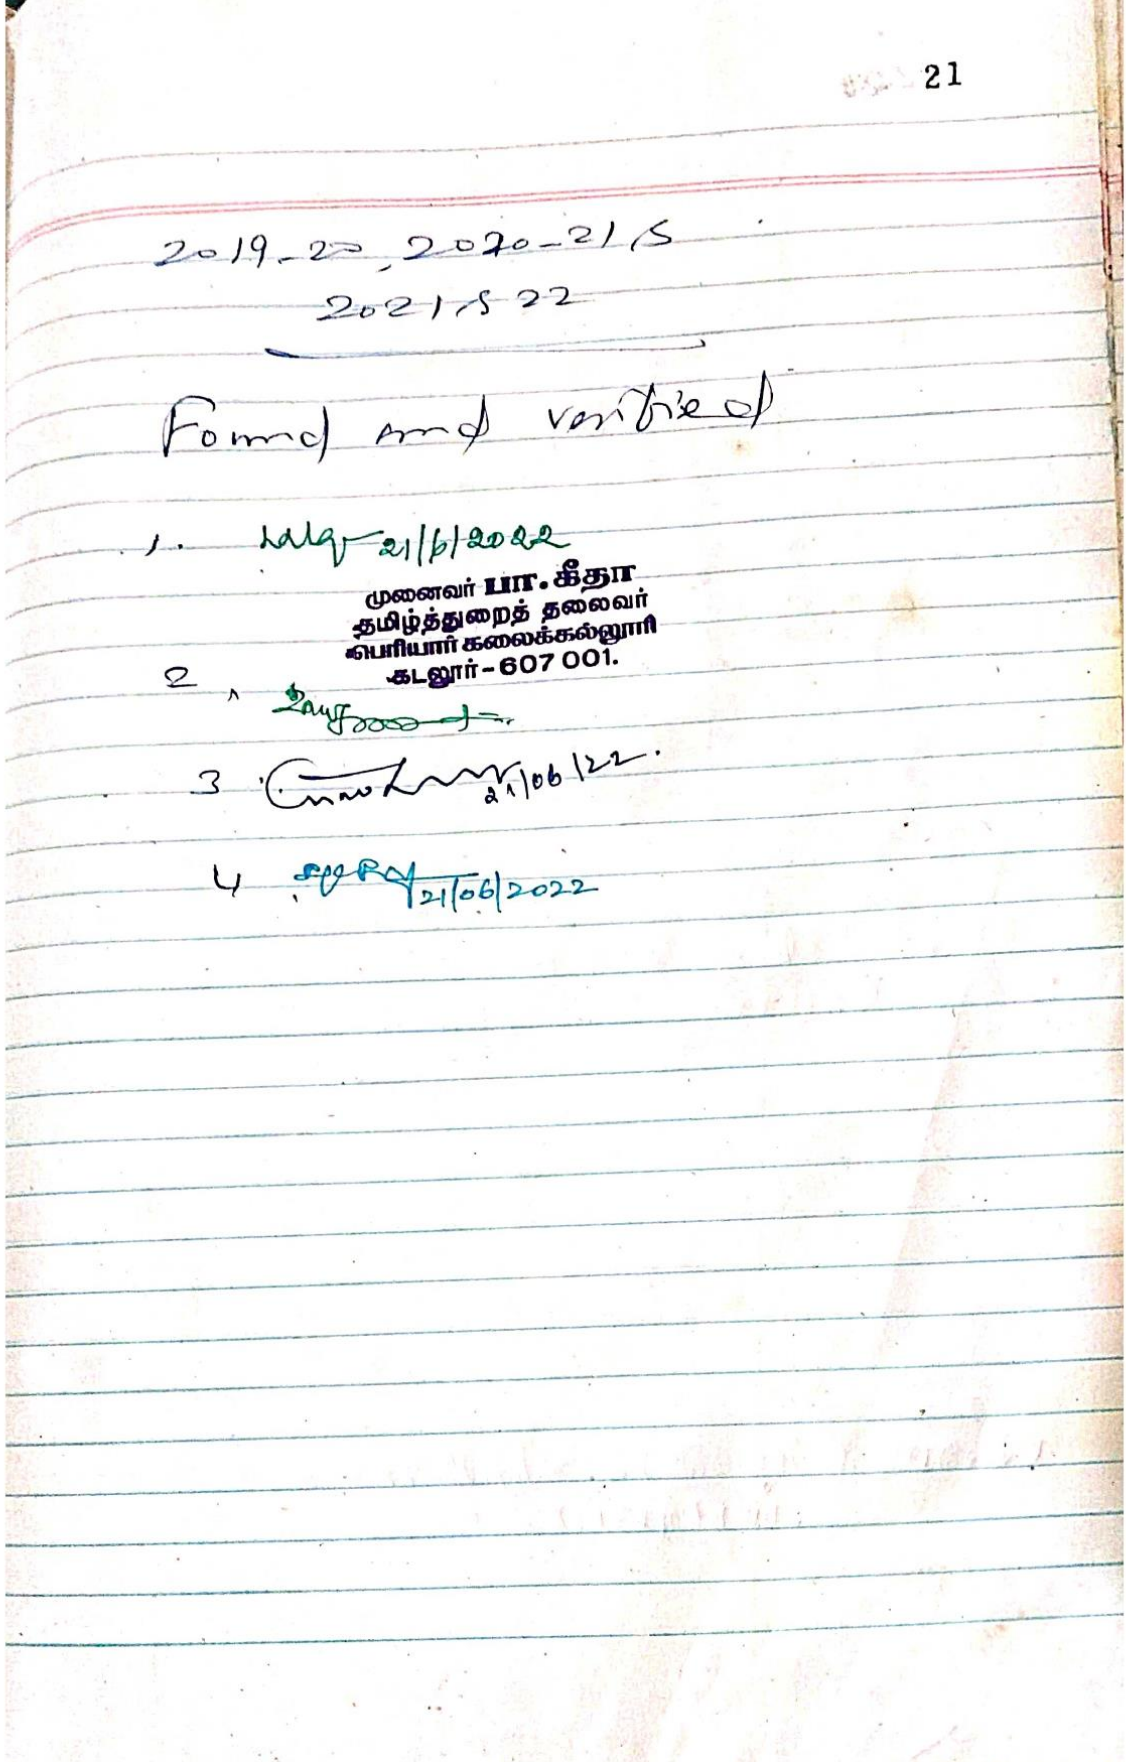 21
2019-20, 2020-21,
2021, 22
Found and verified
1. 21/6/2022
முனைவர் பா. கீதா
தமிழ்த்துறைத் தலைவர்
பெரியார் கலைக்கல்லூரி
கடலூர் - 607 001.
2
3 21/06/22.
4 21/06/2022